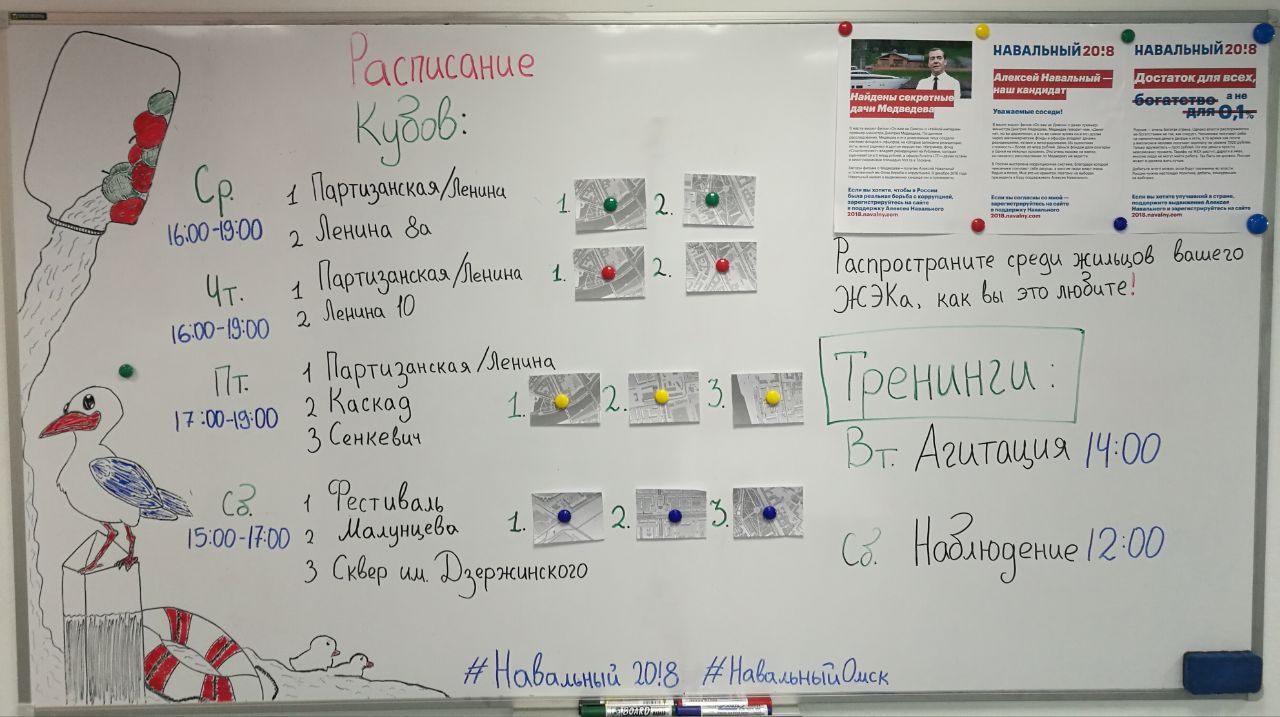 Расписание
Кубов:
Ср.
16:00-19:00
1 Партизанская/Ленина
2 Ленина 8а
1. 2.
Чт.
16:00-19:00
1 Партизанская/Ленина
2 Ленина 10
1. 2.
Пт.
17:00-19:00
1 Партизанская/Ленина
2 Каскад
3 Сенкевич
1. 2. 3.
Сб.
15:00-17:00
1 Фестиваль
2 Малунцева
3 Сквер им. Дзержинского
1. 2. 3.
#Навальный 20!8 #НавальныйОмск
Найдены секретные
дачи Медведева
Если вы хотите, чтобы в России
была реальная борьба с коррупцией,
зарегистрируйтесь на сайте
в поддержку Алексея Навального
2018.navalny.com
НАВАЛЬНЫЙ 20!8
Алексей Навальный —
наш кандидат
Уважаемые соседи!
Если вы согласны со мной —
зарегистрируйтесь на сайте
2018.navalny.com
НАВАЛЬНЫЙ 20!8
Достаток для всех,
богатство а не
для 0,1%
Если вы хотите улучшений в стране,
поддержите выдвижение Алексея
Навального и зарегистрируйтесь на сайте
2018.navalny.com
Распространите среди жильцов вашего
ЖЭКа, как вы это любите!
Тренинги:
Вт. Агитация 14:00
Сб. Наблюдение 12:00
BOARD